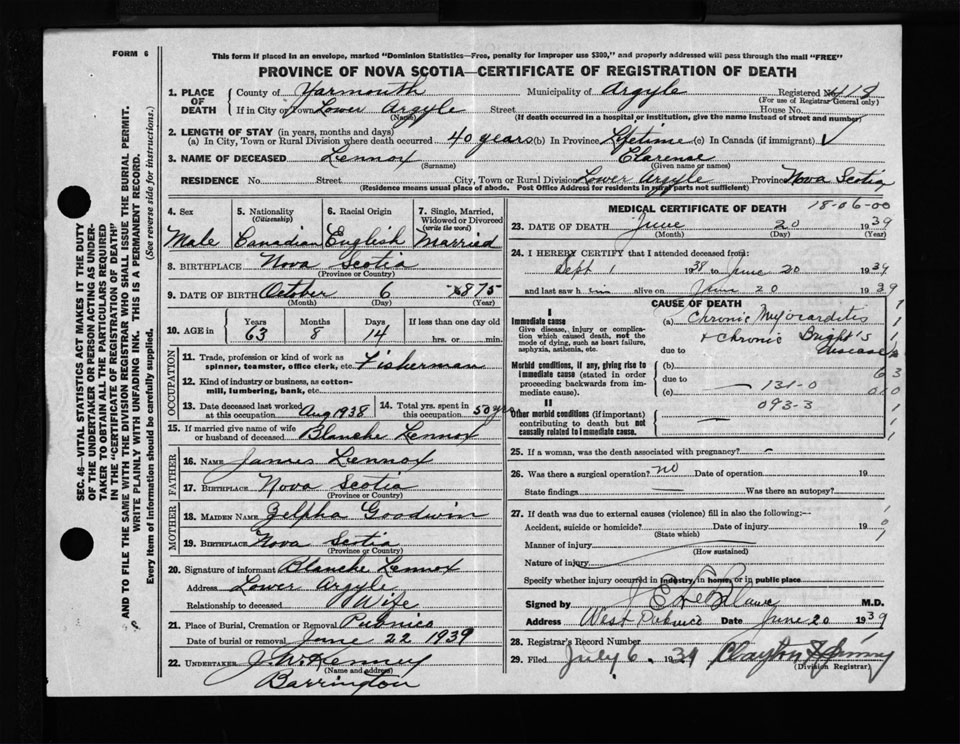 FORM 6
This form if placed in an envelope, marked "Dominion Statistics—Free, penalty for improper use $300," and properly addressed will pass through the mail "FREE"
PROVINCE OF NOVA SCOTIA—CERTIFICATE OF REGISTRATION OF DEATH
SEC. 46—VITAL STATISTICS ACT MAKES IT THE DUTY
OF THE UNDERTAKER OR PERSON ACTING AS UNDER-
TAKER TO OBTAIN ALL THE PARTICULARS REQUIRED
IN THE "CERTIFICATE OF REGISTRATION OF DEATH"
AND TO FILE THE SAME WITH THE DIVISION REGISTRAR WHO SHALL ISSUE THE BURIAL PERMIT.
WRITE PLAINLY WITH UNFADING INK. THIS IS A PERMANENT RECORD.
Every item of information should be carefully supplied. (See reverse side for instructions.)
1. PLACE OF DEATH
County of Yarmouth Municipality of Argyle Registered No. 418
(For use of Registrar General only)
If in City or Town Lower Argyle Street House No.
(Name) (If death occurred in a hospital or institution, give the name instead of street and number)
2. LENGTH OF STAY (in years, months and days)
(a) In City, Town or Rural Division where death occurred 40 years (b) In Province Lifetime (c) In Canada (if immigrant) √
3. NAME OF DECEASED Lennox Clarense
(Surname) (Given name or names)
RESIDENCE No. Street City, Town or Rural Division Lower Argyle Province Nova Scotia
(Residence means usual place of abode. Post Office Address for residents in rural parts not sufficient)
4. Sex
Male
5. Nationality
(Citizenship)
Canadian
6. Racial Origin
English
7. Single, Married, Widowed or Divorced
(write the word)
Married
8. BIRTHPLACE Nova Scotia
(Province or Country)
9. DATE OF BIRTH October 6 1875
(Month) (Day) (Year)
10. AGE in Years Months Days If less than one day
63 8 14 hrs. or min.
OCCUPATION
11. Trade, profession or kind of work as
spinner, teamster, office clerk, etc. Fisherman
12. Kind of industry or business, as cotton-
mill, lumbering, bank, etc.
13. Date deceased last worked
at this occupation Aug 1938
14. Total yrs. spent in
this occupation 50 yrs
15. If married give name of wife
or husband of deceased Blanche Lennox
FATHER
16. NAME James Lennox
17. BIRTHPLACE Nova Scotia
(Province or Country)
MOTHER
18. MAIDEN NAME Zelpha Goodwin
19. BIRTHPLACE Nova Scotia
(Province or Country)
20. Signature of informant Blanche Lennox
Address Lower Argyle
Relationship to deceased Wife
21. Place of Burial, Cremation or Removal Pubnico
Date of burial or removal June 22 1939
22. UNDERTAKER J. McKenney
(Name and address)
Barrington
MEDICAL CERTIFICATE OF DEATH
18-06-00
23. DATE OF DEATH June 20 1939
(Month) (Day) (Year)
24. I HEREBY CERTIFY that I attended deceased from:
Sept 1 1938 to June 20 1939
and last saw him alive on June 20 1939
CAUSE OF DEATH
I
Immediate cause
Give disease, injury or complica-
tion which caused death, not the
mode of dying, such as heart failure,
asphyxia, asthenia, etc.
(a) Chronic Myocarditis
+ Chronic Bright's
disease
due to
Morbid conditions, if any, giving rise to
immediate cause (stated in order
proceeding backwards from im-
mediate cause).
(b)
63
due to
131-0
(c)
010
II
093-3
Other morbid conditions (if important)
contributing to death but not
causally related to immediate cause.
25. If a woman, was the death associated with pregnancy? -
26. Was there a surgical operation? no Date of operation 19
State findings Was there an autopsy?
27. If death was due to external causes (violence) fill in also the following:—
Accident, suicide or homicide? Date of injury 19
(State which)
Manner of injury
(How sustained)
Nature of injury
Specify whether injury occurred in industry, in home, or in public place
Signed by M.D.
Address West Pubnico Date June 20 1939
28. Registrar's Record Number
29. Filed July 6 1939 Clayton
(Division Registrar)